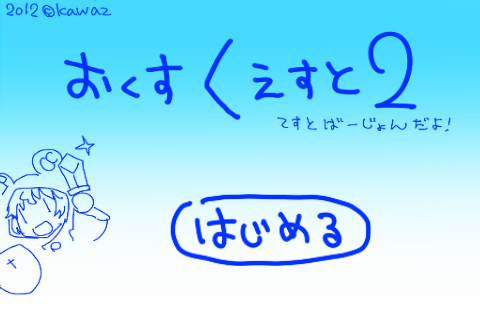 2012©kawaz
おくすくえすと2
てすとばーじょんだよ!
はじめる